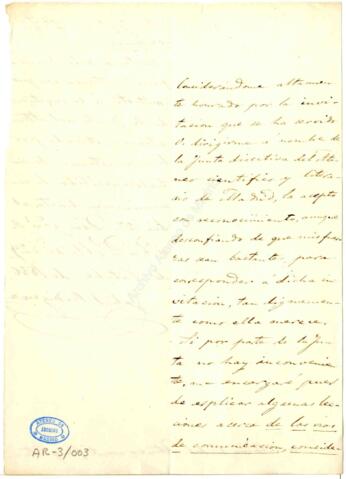 Considerándome altamen-
te honrado por la invi-
tacion que se ha servido
V. dirigirme á nombre de
la Junta directiva del Ate-
neo cientifico y litera-
rio de Madrid, la acepto
con reconocimiento, aunque
desconfiando de que mis fuer-
zas sean bastante, para
corresponder á dicha in-
vitacion, tan dignamen-
te como ella merece.
Si por parte de la Jun-
ta no hay inconvenien-
te, me encargaré pues
de esplicar algunas lec-
ciones acerca de las vias
de comunicacion, conside-
AR-3/003